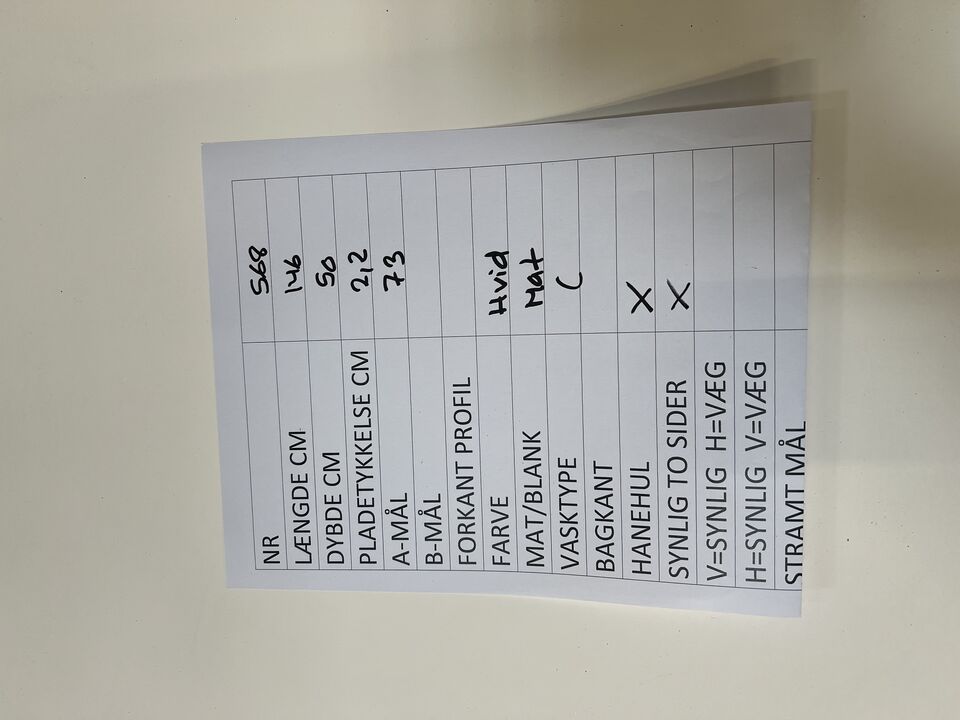 NR 568
LÆNGDE CM 146
DYBDE CM 50
PLADETYKKELSE CM 2,2
A-MÅL 73
B-MÅL
FORKANT PROFIL
FARVE Hvid
MAT/BLANK Mat
VASKTYPE C
BAGKANT
HANEHUL X
SYNLIG TO SIDER X
V=SYNLIG H=VÆG
H=SYNLIG V=VÆG
STRAMT MÅL